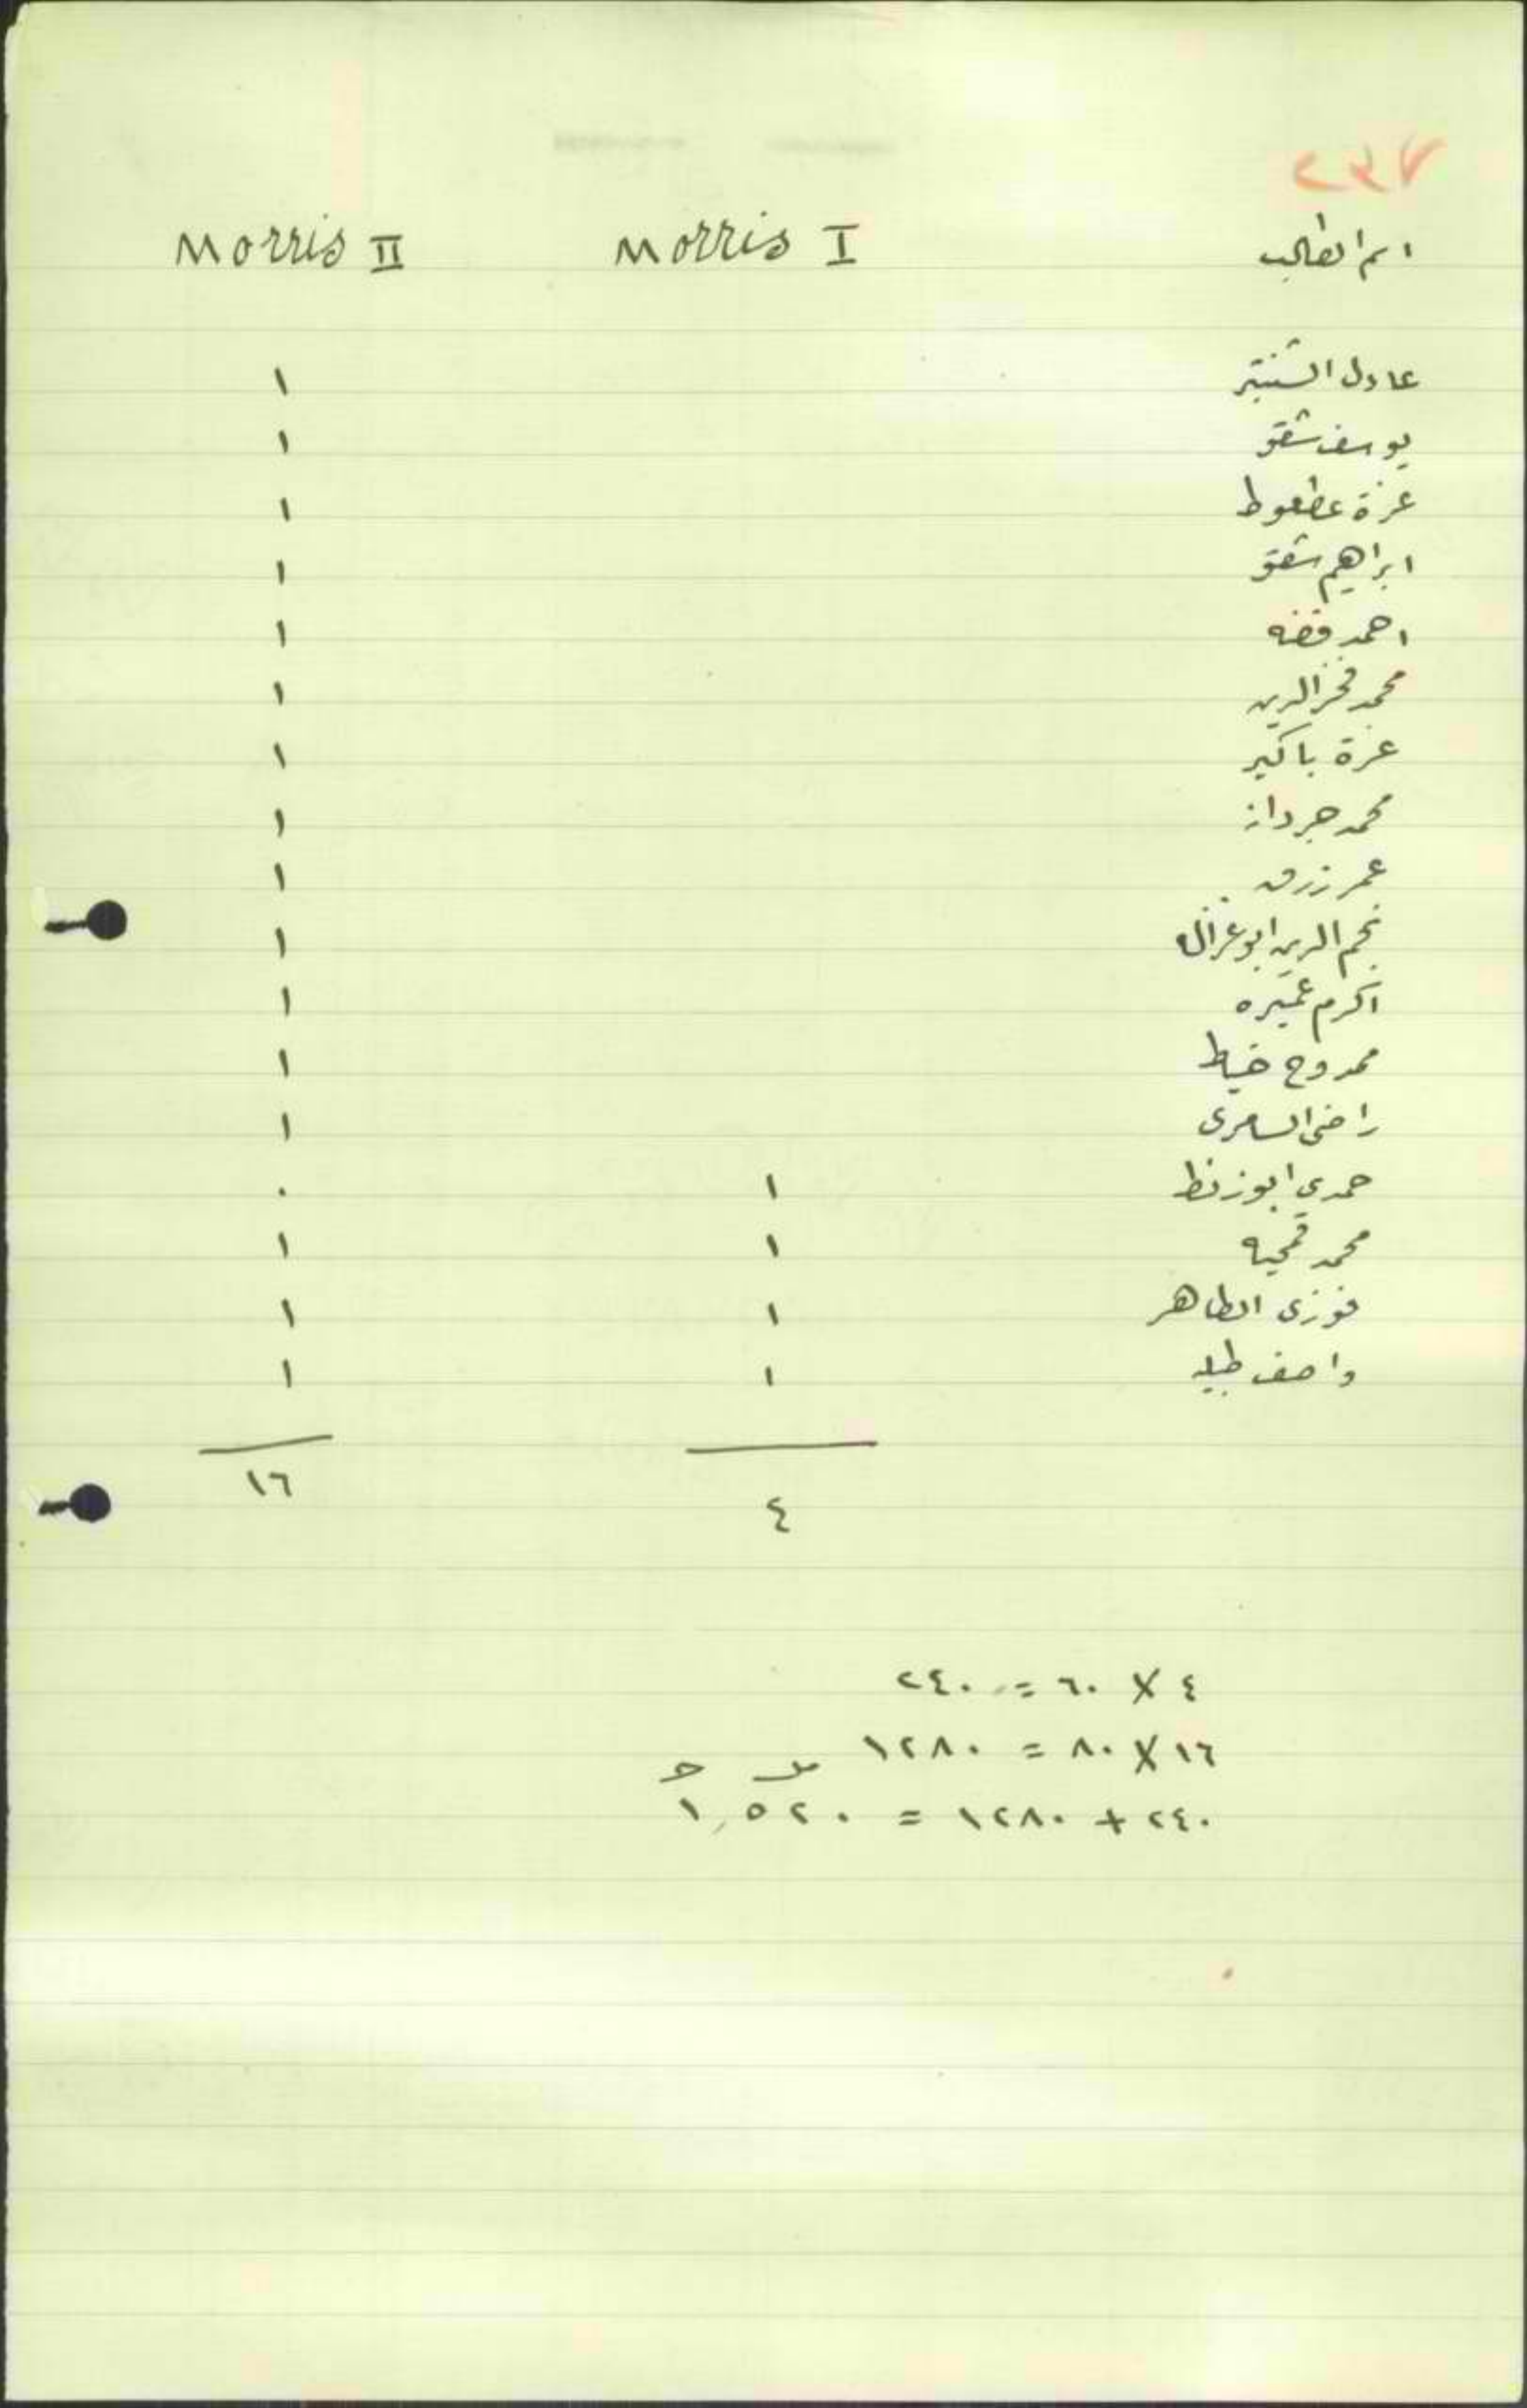 ٢٣٧
اسم الطالب Morris I Morris II
عادل الشنتير ١
يوسف شقو ١
عزة عطعوط ١
ابراهيم شقو ١
احمد فضه ١
محمد فخر الدين ١
عزة باكير ١
محمد جردانه ١
عمر زرق ١
نجم الدين ابو غزاله ١
اكرم عميره ١
ممدوح خياط ١
راضي السامري ١
حمدي ابو زنط ١ ٠
محمد قمحيه ١ ١
فوزي الطاهر ١ ١
واصف طبيله ١ ١
٤ ١٦
٤ X ٦٠ = ٢٤٠
١٦ X ٨٠ = ١٢٨٠
مل ج
٢٤٠ + ١٢٨٠ = ١,٥٢٠